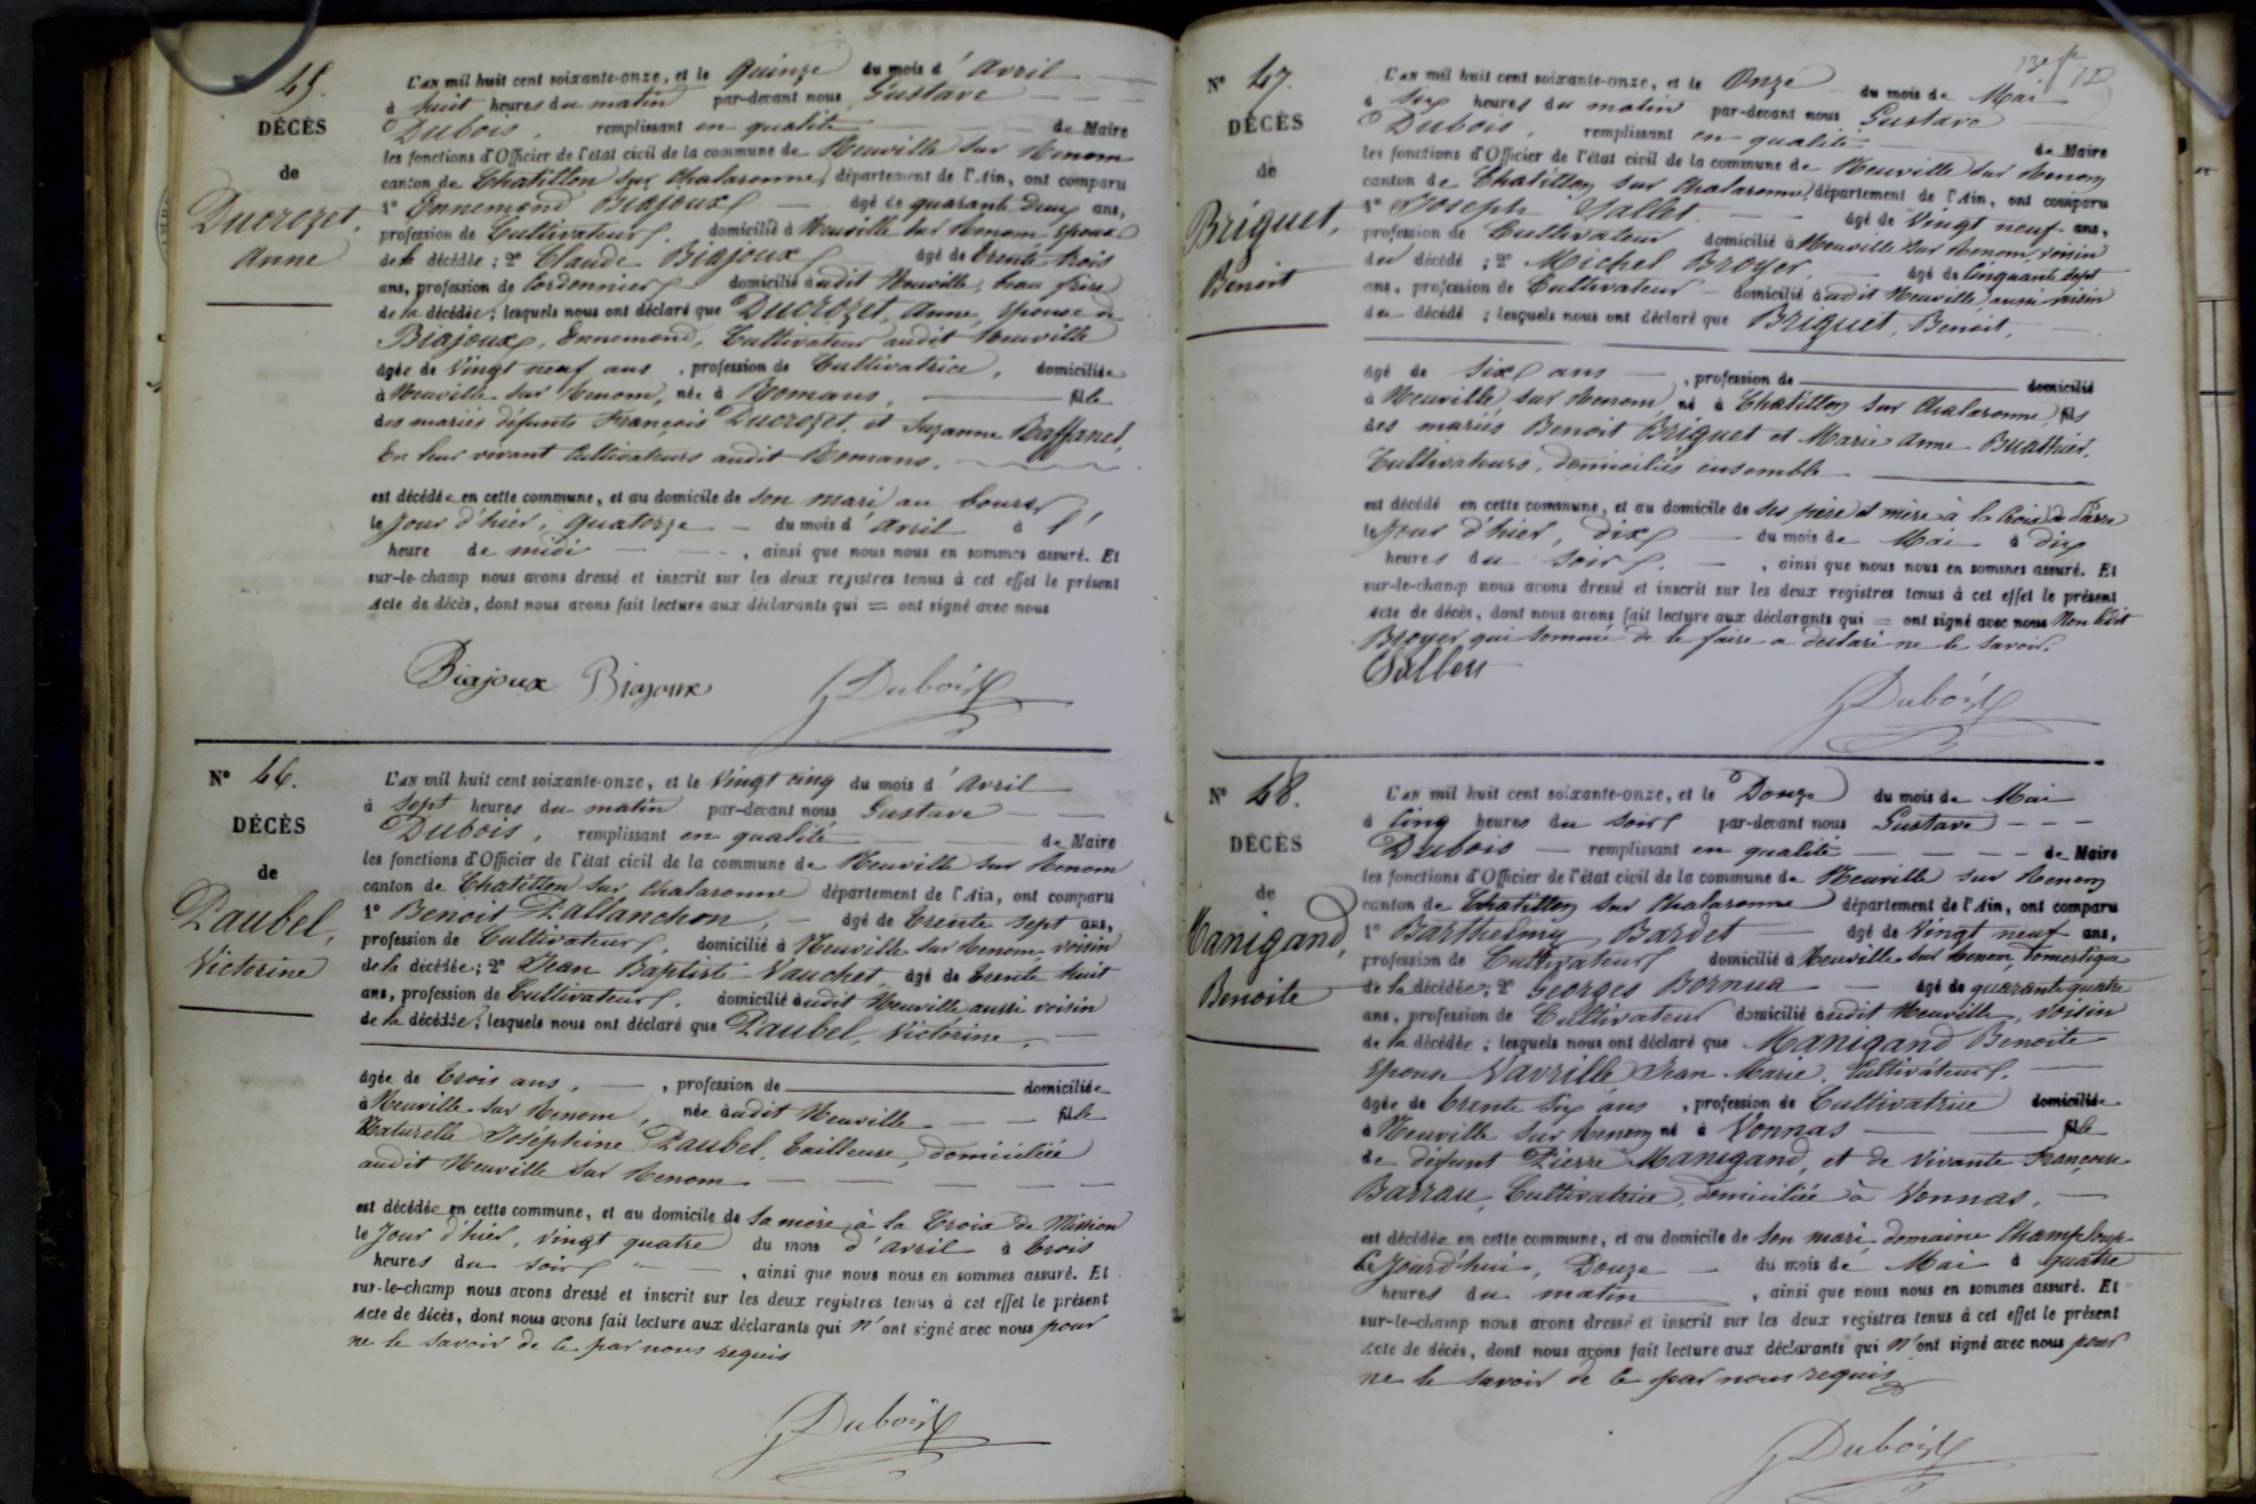 45.
DÉCÈS
de
Ducrozet,
Anne
L'an mil huit cent soixante-onze, et le Quinze du mois d'Avril
à huit heures du matin par-devant nous Gustave
Dubois, remplissant en qualité de Maire
les fonctions d'Officier de l'état civil de la commune de Neuville sur Renom
canton de Chatillon sur Chalaronne, département de l'Ain, ont comparu
1° Ennemond Biajoux âgé de quarante deux ans,
profession de Cultivateur, domicilié à Neuville sur Renom, époux
de la décédée; 2° Claude Biajoux âgé de trente trois
ans, profession de Cordonnier domicilié audit Neuville, beau frère
de la décédée; lesquels nous ont déclaré que Ducrozet, Anne, épouse de
Biajoux, Ennemond, Cultivateur audit Neuville
âgée de Vingt neuf ans, profession de Cultivatrice, domiciliée
à Neuville sur Renom, née à Romans, fille
des mariés défunts François Ducrozet, et Suzanne Raffanel,
En leur vivant Cultivateurs audit Romans.
est décédée en cette commune, et au domicile de son mari au bourg
le Jour d'hier, quatorze du mois d'Avril à l'
heure de midi, ainsi que nous nous en sommes assuré. Et
sur-le-champ nous avons dressé et inscrit sur les deux registres tenus à cet effet le présent
acte de décès, dont nous avons fait lecture aux déclarants qui = ont signé avec nous
Biajoux Biajoux G Dubois
N° 46.
DÉCÈS
de
Paubel,
Victorine
L'an mil huit cent soixante-onze, et le Vingt cinq du mois d'Avril
à sept heures du matin par-devant nous Gustave
Dubois, remplissant en qualité de Maire
les fonctions d'Officier de l'état civil de la commune de Neuville sur Renom
canton de Chatillon sur Chalaronne département de l'Ain, ont comparu
1° Benoit Pallanchon, âgé de trente sept ans,
profession de Cultivateur, domicilié à Neuville sur Renom, voisin
de la décédée; 2° Jean Baptiste Vauchet, âgé de trente huit
ans, profession de Cultivateur, domicilié audit Neuville aussi voisin
de la décédée; lesquels nous ont déclaré que Paubel, Victorine,
âgée de trois ans, profession de domiciliée
à Neuville sur Renom, née audit Neuville fille
Naturelle Joséphine Paubel, tailleuse, domiciliée
audit Neuville sur Renom
est décédée en cette commune, et au domicile de sa mère, à la Croix de Mission
le Jour d'hier, vingt quatre du mois d'avril à trois
heures du soir, ainsi que nous nous en sommes assuré. Et
sur-le-champ nous avons dressé et inscrit sur les deux registres tenus à cet effet le présent
acte de décès, dont nous avons fait lecture aux déclarants qui n'ont signé avec nous pour
ne le savoir de ce par nous requis
G Dubois
N° 47.
DÉCÈS
de
Briguet,
Benoit
L'an mil huit cent soixante-onze, et le Onze du mois de Mai
à six heures du matin par-devant nous Gustave
Dubois, remplissant en qualité de Maire
les fonctions d'Officier de l'état civil de la commune de Neuville sur Renom
canton de Chatillon sur Chalaronne, département de l'Ain, ont comparu
1° Joseph Sallet âgé de Vingt neuf ans,
profession de Cultivateur domicilié à Neuville sur Renom, voisin
du décédé; 2° Michel Broyer, âgé de Cinquante sept
ans, profession de Cultivateur domicilié audit Neuville, aussi voisin
du décédé; lesquels nous ont déclaré que Briguet, Benoit,
âgé de Six ans, profession de domicilié
à Neuville sur Renom, né à Chatillon sur Chalaronne, fils
des mariés Benoit Briguet et Marie Anne Buathier,
Cultivateurs, domiciliés ensemble
est décédé en cette commune, et au domicile de ses père et mère à la Croix de
le Jour d'hier, dix du mois de Mai à dix
heures du soir, ainsi que nous nous en sommes assuré. Et
sur-le-champ nous avons dressé et inscrit sur les deux registres tenus à cet effet le présent
acte de décès, dont nous avons fait lecture aux déclarants qui = ont signé avec nous Non ledit
Broyer qui sommé de le faire a déclaré ne le savoir.
G Dubois
N° 48.
DÉCÈS
de
Manigand,
Benoite
L'an mil huit cent soixante-onze, et le Douze du mois de Mai
à Cinq heures du soir par-devant nous Gustave
Dubois remplissant en qualité de Maire
les fonctions d'Officier de l'état civil de la commune de Neuville sur Renom
canton de Chatillon sur Chalaronne département de l'Ain, ont comparu
1° Barthelmy Bardet âgé de Vingt neuf ans,
profession de Cultivateur domicilié à Neuville sur Renom, domestique
de la décédée; 2° Georges Bornua âgé de quarante quatre
ans, profession de Cultivateur domicilié audit Neuville, voisin
de la décédée; lesquels nous ont déclaré que Manigand Benoite
épouse Vavrille Jean Marie, Cultivateur,
âgée de trente six ans, profession de Cultivatrice domiciliée
à Neuville sur Renom né à Vonnas fille
de défunt Pierre Manigand, et de vivante Françoise
Barrau, Cultivatrice, domiciliée à Vonnas,
est décédée en cette commune, et au domicile de son mari, domaine Champloup
Ce Jourd'hui, Douze du mois de Mai à quatre
heures du matin, ainsi que nous nous en sommes assuré. Et
sur-le-champ nous avons dressé et inscrit sur les deux registres tenus à cet effet le présent
acte de décès, dont nous avons fait lecture aux déclarants qui n'ont signé avec nous pour
ne le savoir de ce par nous requis
G Dubois